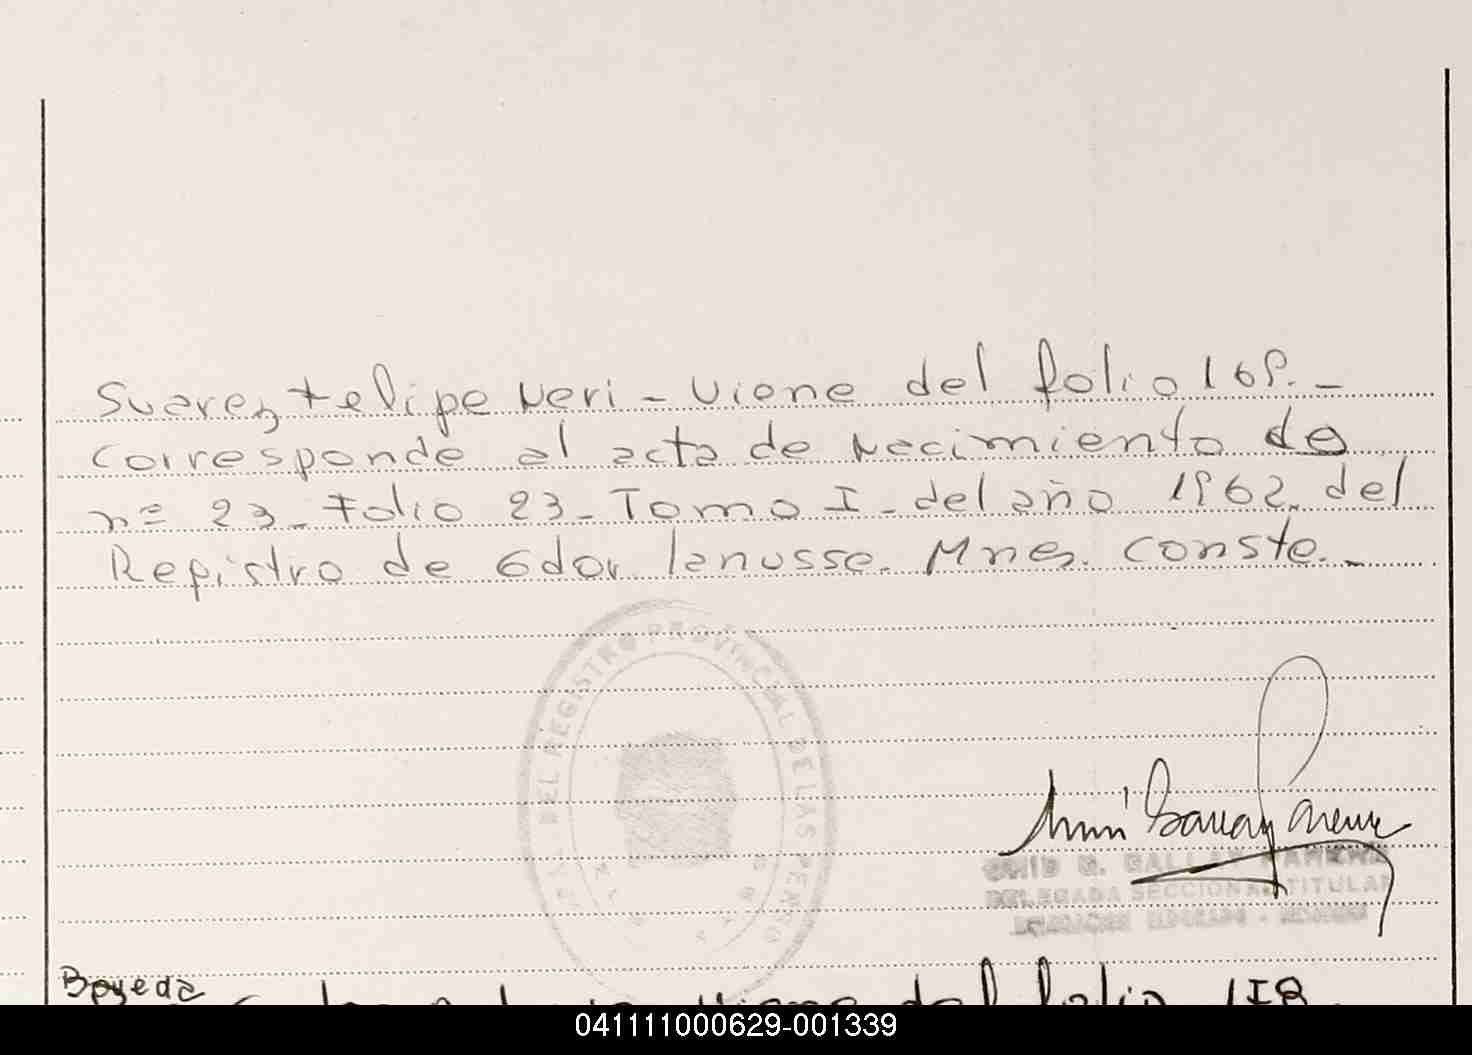 Suarez Felipe Neri - Viene del folio 169. -
Corresponde al acta de Necimiento de
nº 23 - Folio 23 - Tomo I - del año 1962. del
Registro de Gdor. Lanusse. Mnes. Conste. -
DEL REGISTRO PROVINCIAL DE LAS PERSO
DELEGADA SECCIONAL TITULAR
Boveda
Viene del folio
041111000629-001339